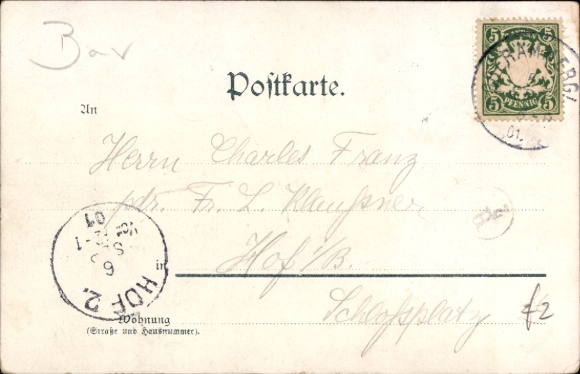 Bav
5 BAYERN 5
5 PFENNIG 5
01.
Postkarte.
An
Herrn Charles Franz
pdr. Fr. L. Klaussner
in Hof i/B.
Schlossplatz
HOF 2.
6
01
Wohnung
(Straße und Hausnummer).
f2